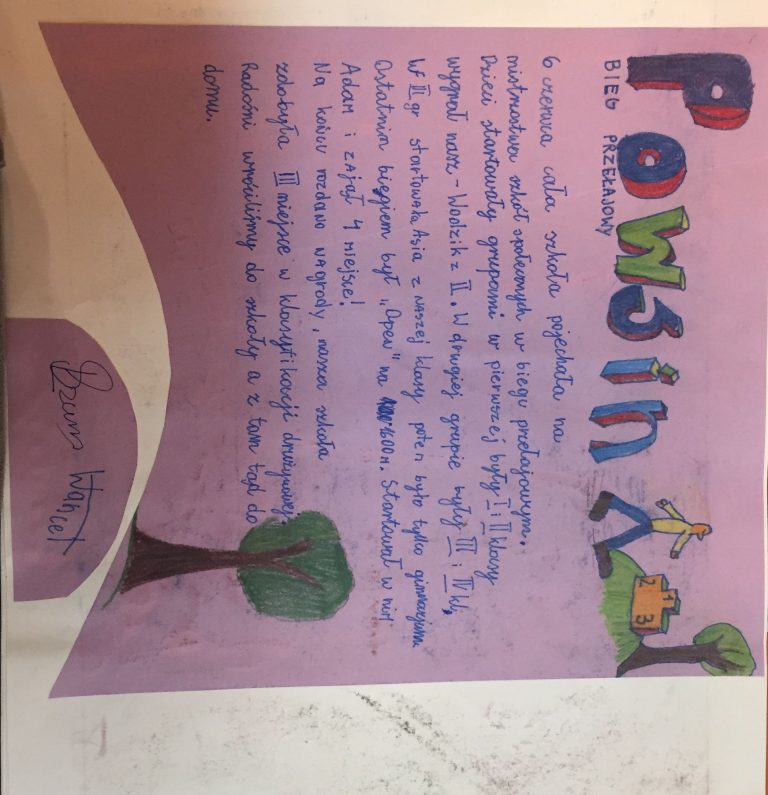 Powsin
BIEG PRZEŁAJOWY
6 czerwca cała szkoła pojechała na
mistrzostwa szkół społecznych w biegu przełajowym.
Dzieci startowały grupami w pierwszej były I i II klasy
wygrał nasz - Wodzik z II. W drugiej grupie były III i IV kl,
W III gr startowała Asia z naszej klasy potem było tylko gimnazjum
Ostatnim biegiem był "Open" na 1600 m. Startował w nim
Adam i zajął 4 miejsce!
Na końcu rozdano nagrody, nasza szkoła
zdobyła III miejsce w klasyfikacji drużynowej.
Radośni wróciliśmy do szkoły a z tam tąd do
domu.
2 1 3